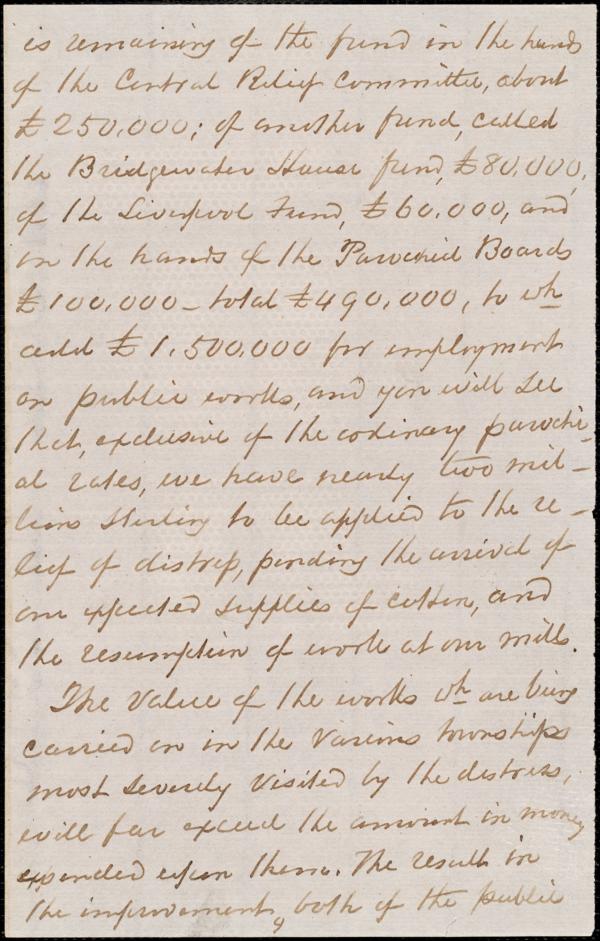 is remaining of the fund in the hands
of the Central Relief Committee, about
£250.000; of another fund, called
the Bridgewater House fund, £80.000,
of the Liverpool Fund, £60.000, and
in the hands of the Parochial Boards
£100.000 – total £490.000, to wh
add £1.500.000 for employment
on public works, and you will see
that, exclusive of the ordinary parochi-
al rates, we have nearly two mil-
lions sterling to be applied to the re-
lief of distress, pending the arrival of
our expected supplies of cotton, and
the resumption of work at our mills.
The value of the works wh are being
carried on in the various townships
most severely visited by the distress,
will far exceed the amount in money
expended upon them. The result in
the improvement, both of the public